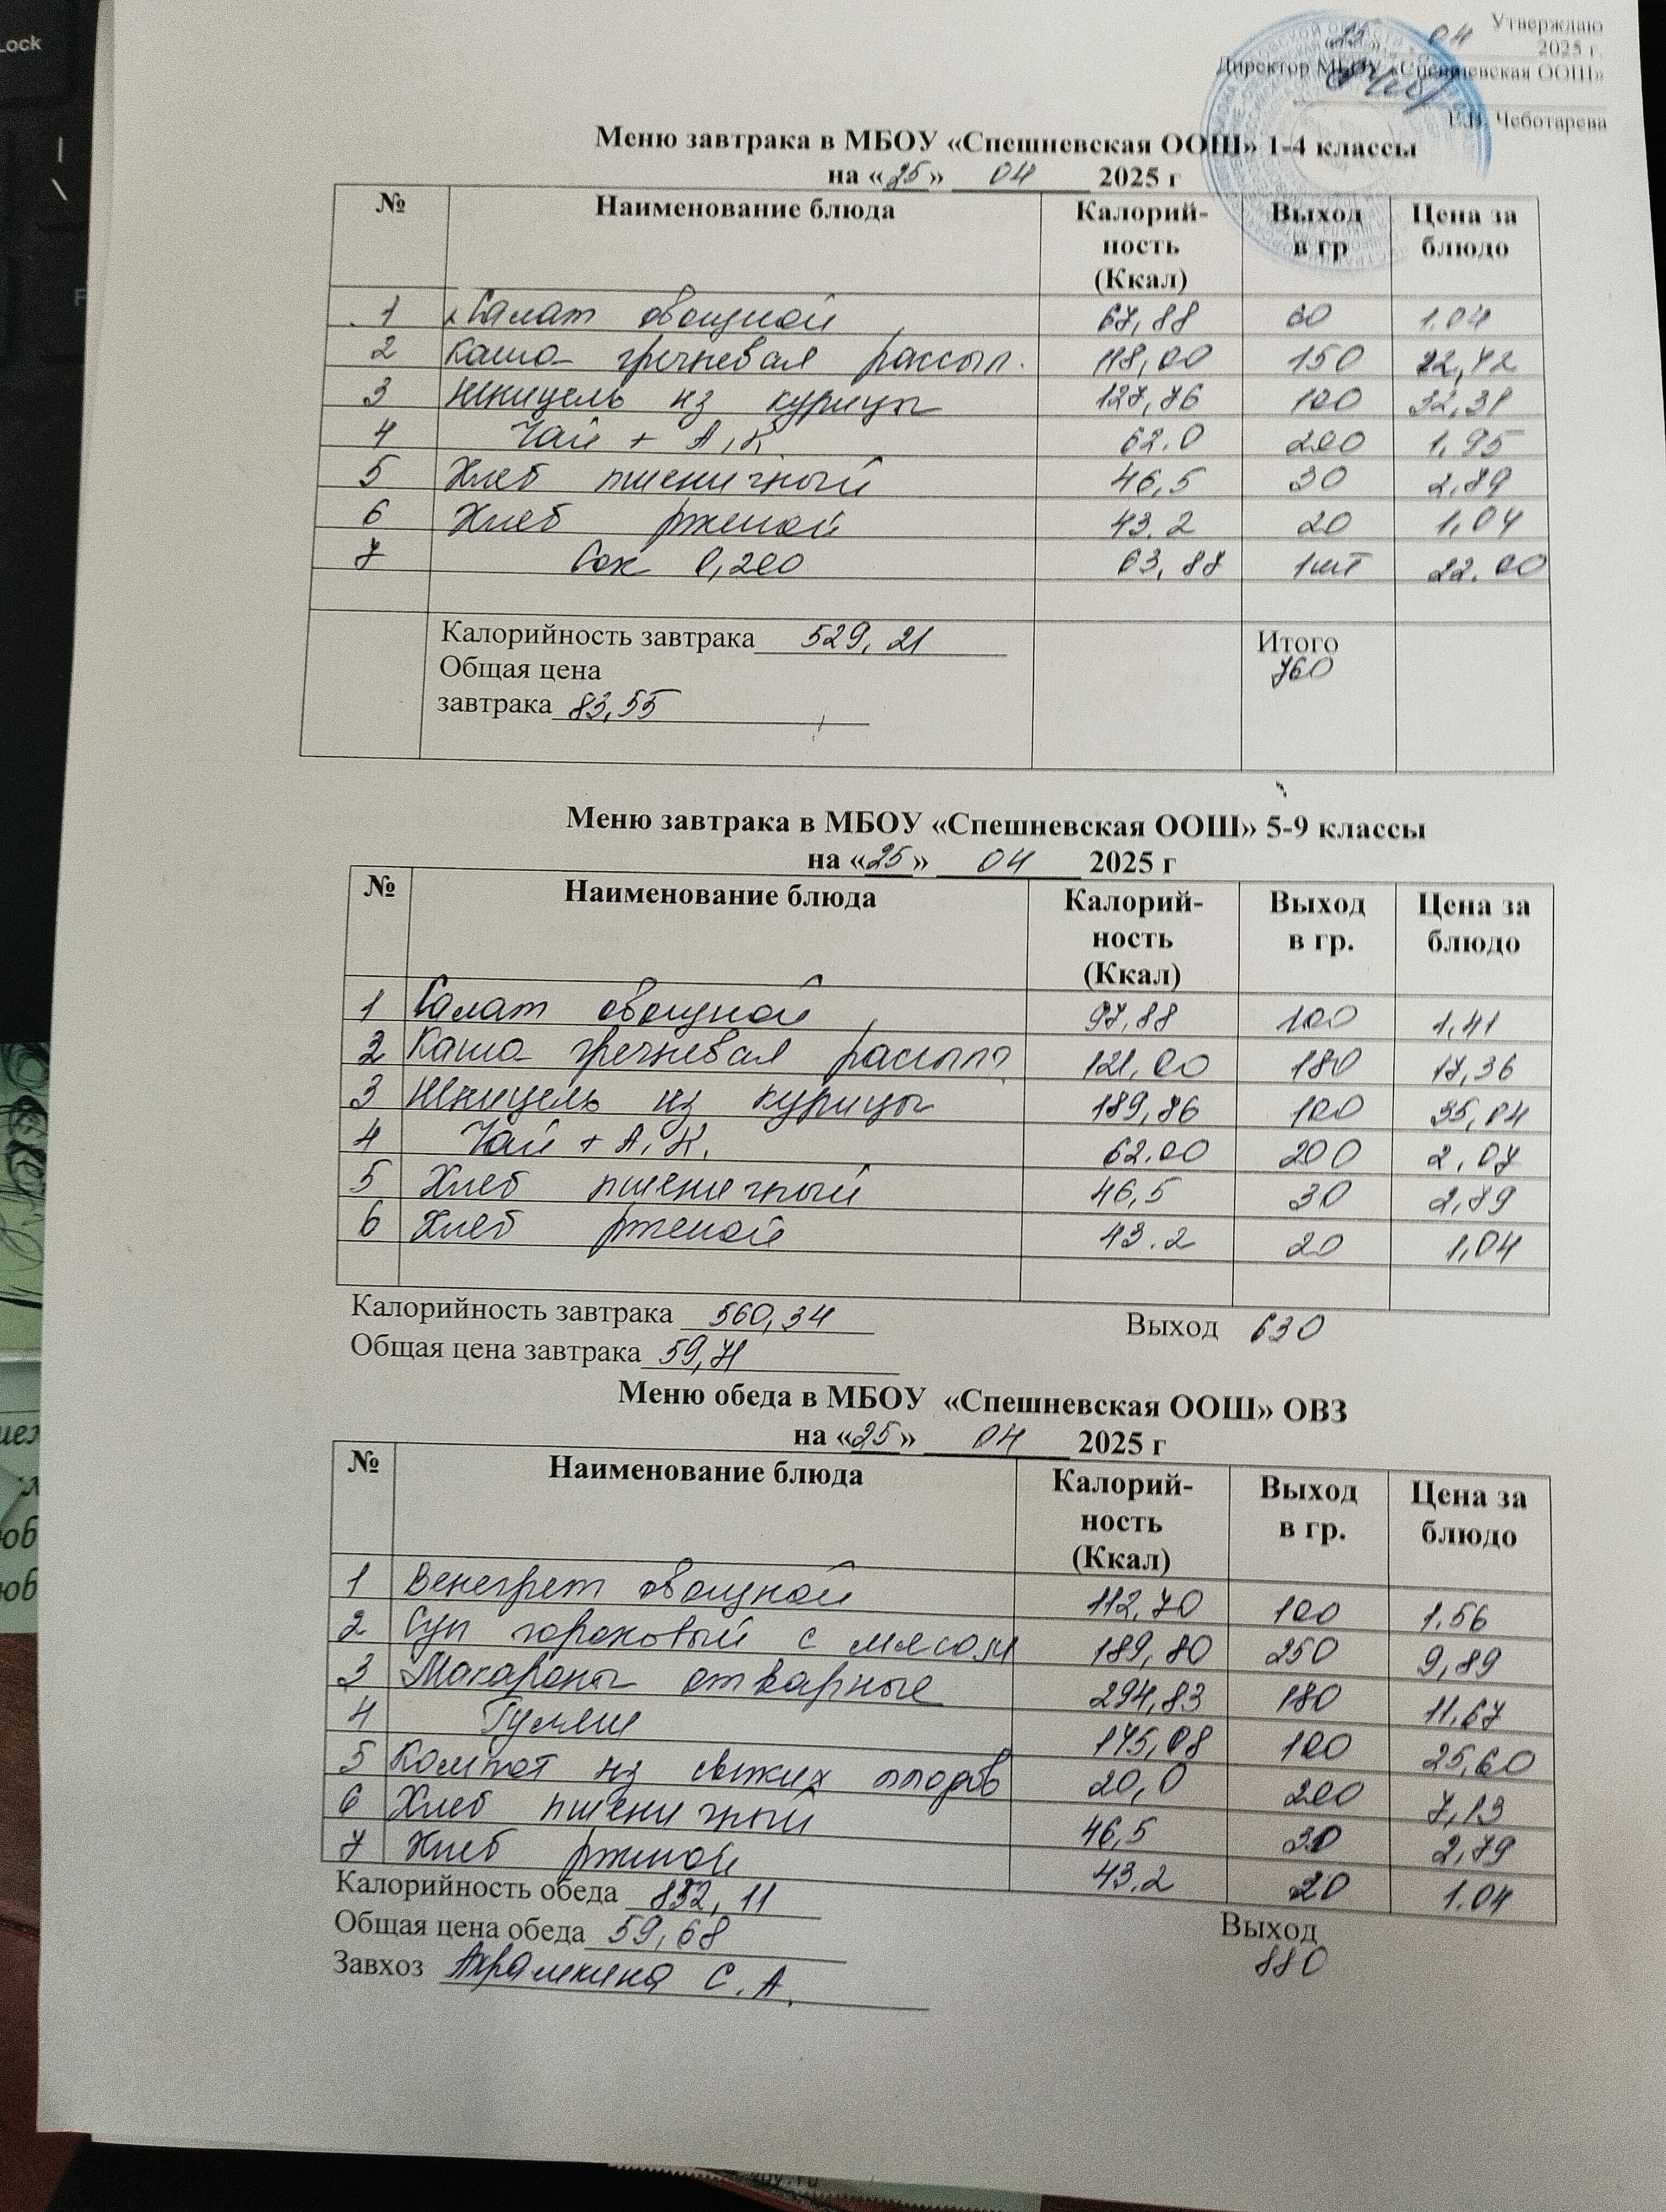 Утверждаю
«25» 04 2025 г.
Директор МБОУ «Спешневская ООШ»
Е.В. Чеботарева
Меню завтрака в МБОУ «Спешневская ООШ» 1-4 классы
на «25» 04 2025 г
№ Наименование блюда Калорий-ность (Ккал) Выход в гр Цена за блюдо
1 Салат овощной 67,88 60 1.04
2 Каша гречневая рассып. 118,00 150 22,42
3 Шницель из курицы 127,76 100 32,31
4 Чай + А,К 62.0 200 1,95
5 Хлеб пшеничный 46,5 30 2,89
6 Хлеб ржаной 43.2 20 1,04
7 Сок 0,200 63,88 1шт 22.00
Калорийность завтрака 529,21 Итого
Общая цена 760
завтрака 83,55
Меню завтрака в МБОУ «Спешневская ООШ» 5-9 классы
на «25» 04 2025 г
№ Наименование блюда Калорий-ность (Ккал) Выход в гр. Цена за блюдо
1 Салат овощной 97,88 100 1,41
2 Каша гречневая рассып 121,00 180 17,36
3 Шницель из курицы 189,86 100 35,04
4 Чай + А,К. 62.00 200 2,07
5 Хлеб пшеничный 46,5 30 2,89
6 Хлеб ржаной 43.2 20 1,04
Калорийность завтрака 560,34 Выход 630
Общая цена завтрака 59,71
Меню обеда в МБОУ «Спешневская ООШ» ОВЗ
на «25» 04 2025 г
№ Наименование блюда Калорий-ность (Ккал) Выход в гр. Цена за блюдо
1 Венегрет овощной 112,70 100 1.56
2 Суп гороховый с мясом 189,80 250 9,89
3 Макароны отварные 294,83 180 11,67
4 Гуляш 145,08 100 25,60
5 Компот из свежих плодов 20,0 200 7,13
6 Хлеб пшеничный 46,5 30 2,79
7 Хлеб ржаной 43.2 20 1.04
Калорийность обеда 852,11 Выход
Общая цена обеда 59,68 880
Завхоз Ахрамкина С.А.
Lock